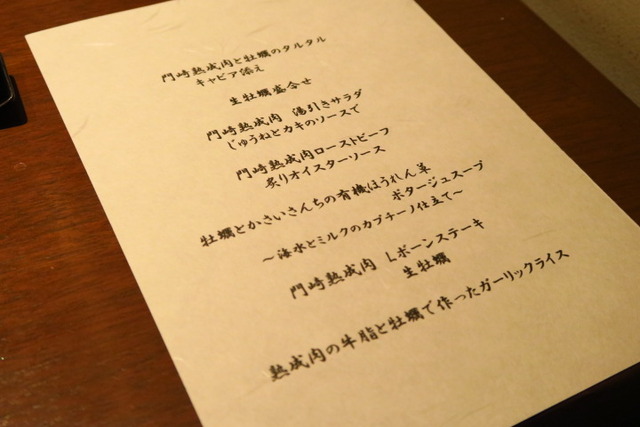 門崎熟成肉と牡蠣のタルタル
キャビア添え
生牡蠣盛合せ
門崎熟成肉 湯引きサラダ
じゅうねとカキのソースで
門崎熟成肉ローストビーフ
炙りオイスターソース
牡蠣とかさいさんちの有機ほうれん草
ポタージュスープ
～海水とミルクのカプチーノ仕立て～
門崎熟成肉 Lボーンステーキ
生牡蠣
熟成肉の牛脂と牡蠣で作ったガーリックライス